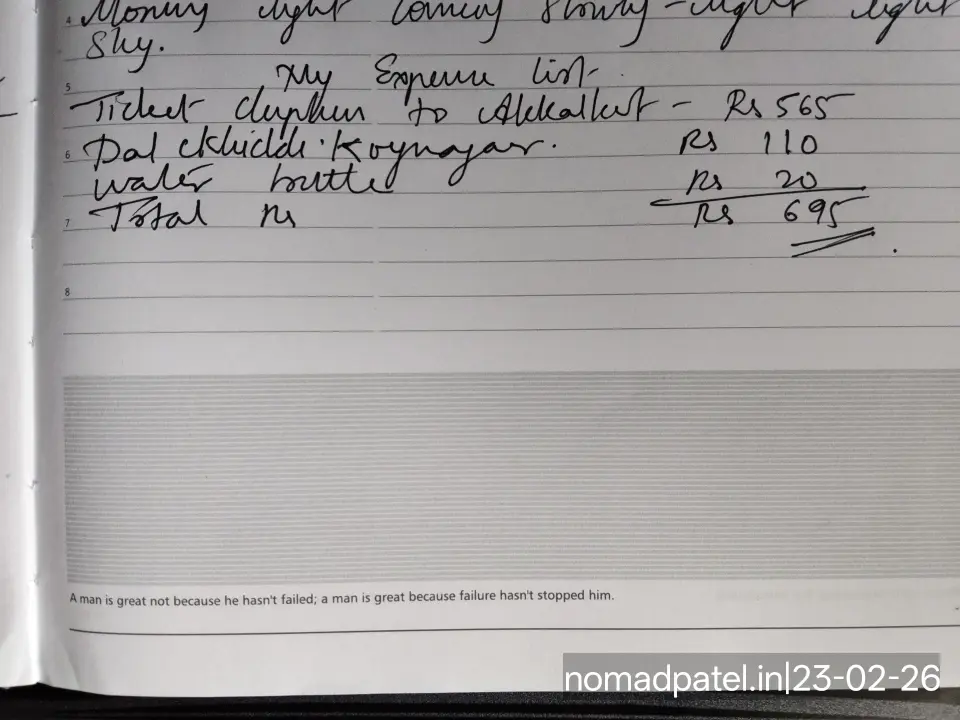 4 Morning light coming slowly - light light
Sky.
5 My Expense list
Ticket to Akkalkot - Rs 565
6 Dal Khichdi. Koynagar. Rs 110
water bottle Rs 20
7 Total Rs Rs 695
8
A man is great not because he hasn't failed; a man is great because failure hasn't stopped him.
nomadpatel.in|23-02-26